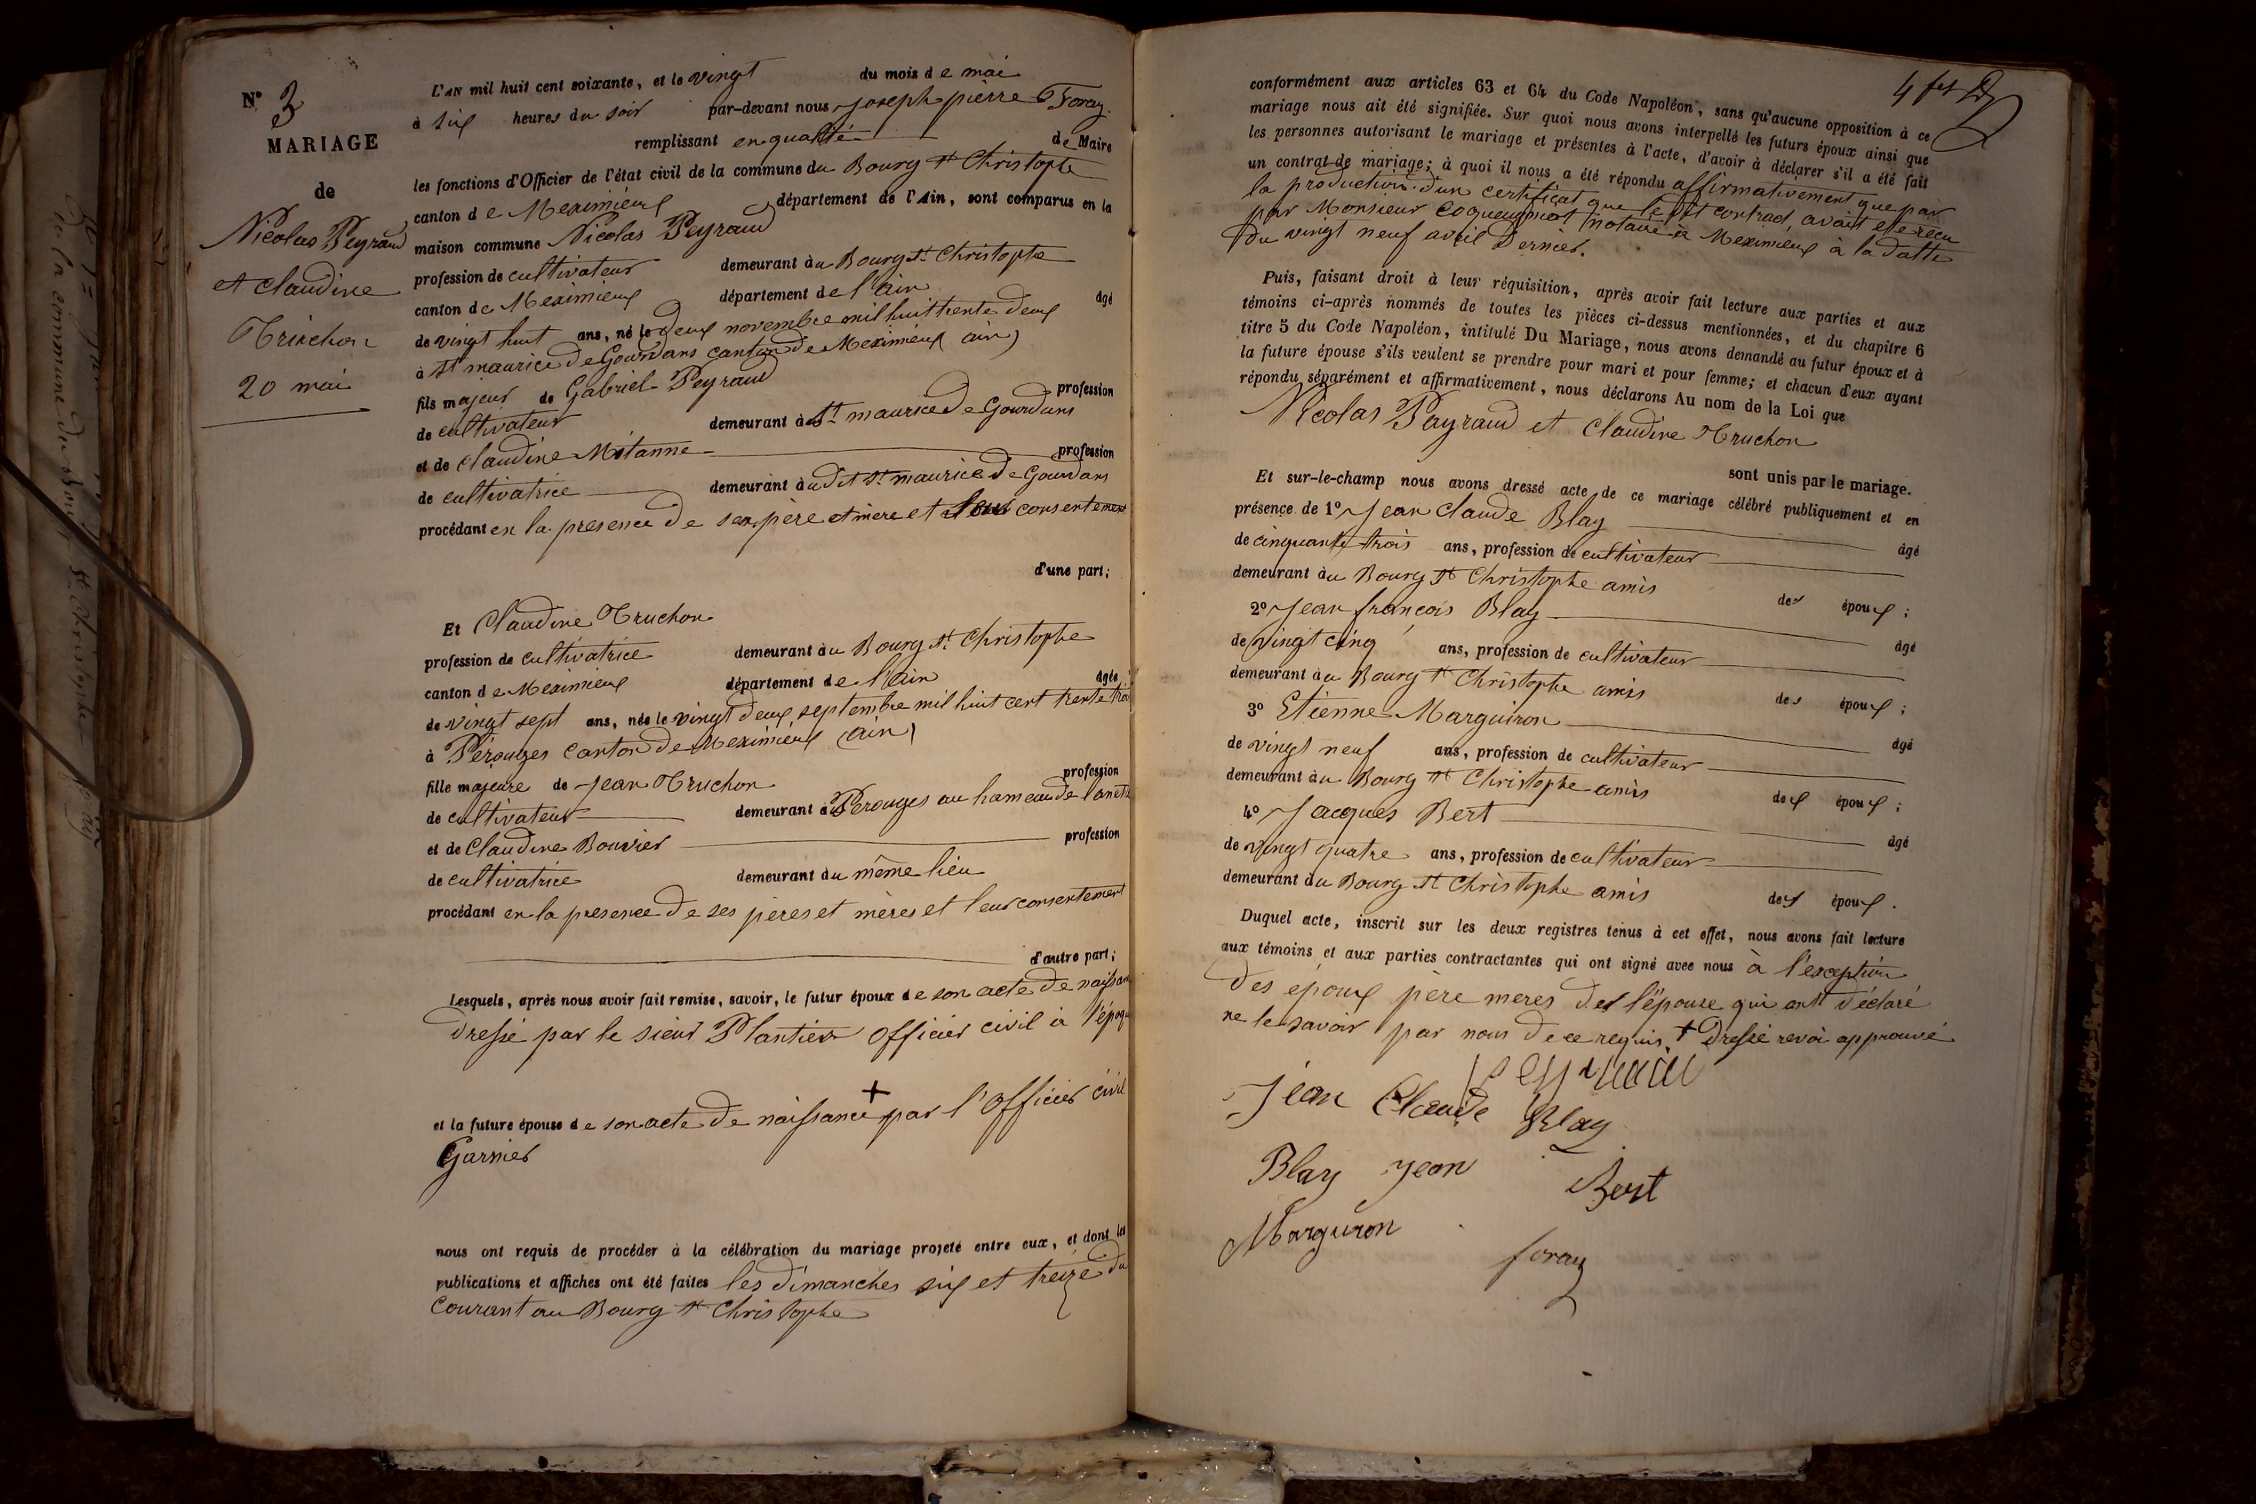 N° 3
MARIAGE
de
Nicolas Peyraud
et Claudine
Truchon
20 mai
L'AN mil huit cent soixante, et le vingt du mois de mai
à six heures du soir par-devant nous Joseph pierre Foray
remplissant en qualité de Maire
les fonctions d'Officier de l'état civil de la commune du Bourg St Christophe
canton de Meximieux département de l'Ain, sont comparus en la
maison commune Nicolas Peyraud
profession de cultivateur demeurant au Bourg St Christophe
canton de Meximieux département de l'ain âgé
de vingt huit ans, né le deux novembre mil huit trente deux
à St maurice de Gourdans canton de Meximieux (ain)
fils majeur de Gabriel Peyraud profession
de cultivateur demeurant à St maurice de Gourdans
et de Claudine Mitanne profession
de cultivatrice demeurant audit St maurice de Gourdans
procédant en la presence de ses père et mère et leur consentement
d'une part;
Et Claudine Truchon
profession de cultivatrice demeurant au Bourg St Christophe
canton de Meximieux département de l'ain âgée
de vingt sept ans, née le vingt deux septembre mil huit cent trente trois
à Pérouges canton de Meximieux (ain)
fille majeure de Jean Truchon profession
de cultivateur demeurant à Pérouges au hameau de
et de Claudine Bouvier profession
de cultivatrice demeurant au même lieu
procédant en la presence de ses pères et mères et leur consentement
d'autre part;
Lesquels, après nous avoir fait remise, savoir, le futur époux de son acte de naissance
dressé par le sieur Plantier officier civil à l'époque
et la future épouse de son acte de naissance + par l'officier civil
Garnier
nous ont requis de procéder à la célébration du mariage projeté entre eux, et dont les
publications et affiches ont été faites les dimanches six et treize du
courant au Bourg St Christophe
4 fet
conformément aux articles 63 et 64 du Code Napoléon, sans qu'aucune opposition à ce
mariage nous ait été signifiée. Sur quoi nous avons interpellé les futurs époux ainsi que
les personnes autorisant le mariage et présentes à l'acte, d'avoir à déclarer s'il a été fait
un contrat de mariage; à quoi il nous a été répondu affirmativement que par
la production d'un certificat que le dit contract avait été reçu
par Monsieur Coqueugniot notaire à Meximieux à la datte
du vingt neuf avril dernier.
Puis, faisant droit à leur réquisition, après avoir fait lecture aux parties et aux
témoins ci-après nommés de toutes les pièces ci-dessus mentionnées, et du chapitre 6
titre 5 du Code Napoléon, intitulé Du Mariage, nous avons demandé au futur époux et à
la future épouse s'ils veulent se prendre pour mari et pour femme; et chacun d'eux ayant
répondu séparément et affirmativement, nous déclarons Au nom de la Loi que
Nicolas Payraud et Claudine Truchon
sont unis par le mariage.
Et sur-le-champ nous avons dressé acte de ce mariage célébré publiquement et en
présence de 1° Jean Claude Blay âgé
de cinquante trois ans, profession de cultivateur
demeurant au Bourg St Christophe amis des époux;
2° Jean françois Blay âgé
de vingt cinq ans, profession de cultivateur
demeurant au Bourg St Christophe amis des époux;
3° Etienne Marguiron âgé
de vingt neuf ans, profession de cultivateur
demeurant au Bourg St Christophe amis des époux;
4° Jacques Bert âgé
de vingt quatre ans, profession de cultivateur
demeurant au Bourg St Christophe amis des époux.
Duquel acte, inscrit sur les deux registres tenus à cet effet, nous avons fait lecture
aux témoins et aux parties contractantes qui ont signé avec nous à l'exception
des époux père meres de l'épouse qui ont déclaré
ne le savoir par nous de ce requis. + dressé revoi approuvé
Jean Claude Blay
Blay Jean Bert
Marguiron
foray